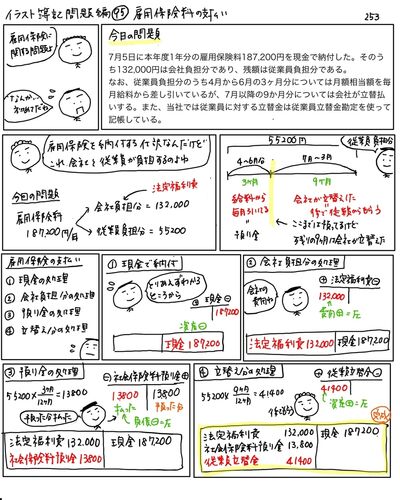 イラスト簿記問題編 95 雇用保険料の支払い
253
雇用保険に
関する問題よ
なんか、
初めてだね
今日の問題
7月5日に本年度1年分の雇用保険料187,200円を現金で納付した。そのう
ち132,000円は会社負担分であり、残額は従業員負担分である。
なお、従業員負担分のうち4月から6月の3ヶ月分については月額相当額を毎
月給料から差し引いているが、7月以降の9か月分については会社が立替払
いする。また、当社では従業員に対する立替金は従業員立替金勘定を使って
記帳している。
雇用保険を納付する仕訳なんだけど
これ、会社と従業員が負担するのよね
今日の問題
雇用保険料
187,200円/年
法定福利費
会社負担分 = 132,000
従業員負担分 = 55200
55200円
従業員負担分
4~6月分
7月~3月
3ヶ月
9ヶ月
給料から
毎月引いてる
預り金
会社が立替えた
後で従業員からもらう
ここまでは預ってるけど
残りの9ヶ月は会社が立替えた
雇用保険の支払い
① 現金の処理
② 会社負担分の処理
③ 預り金の処理
④ 立替え分の処理
① 現金で納付
とりあえずわかる
ところから
⊕ 現金 ⊖
187200
資産⊖
現金 187,200
② 会社負担分の処理
会社の
費用だ
⊕ 法定福利費 ⊖
132,000
費用⊕=左
法定福利費 132,000
現金 187,200
③ 預り金の処理
55200×3ヶ月/12ヶ月=13800
預った分払った
⊖ 社会保険料預り金 ⊕
13800
13800
払った
預った分
負債⊖=左
法定福利費 132,000
現金 187,200
社会保険料預り金 13800
④ 立替え分の処理
55200×9ヶ月/12ヶ月=41400
⊕ 従業員立替金 ⊖
41400
資産⊕=左
法定福利費 132,000
現金 187,200
社会保険料預り金 13,800
従業員立替金 41400